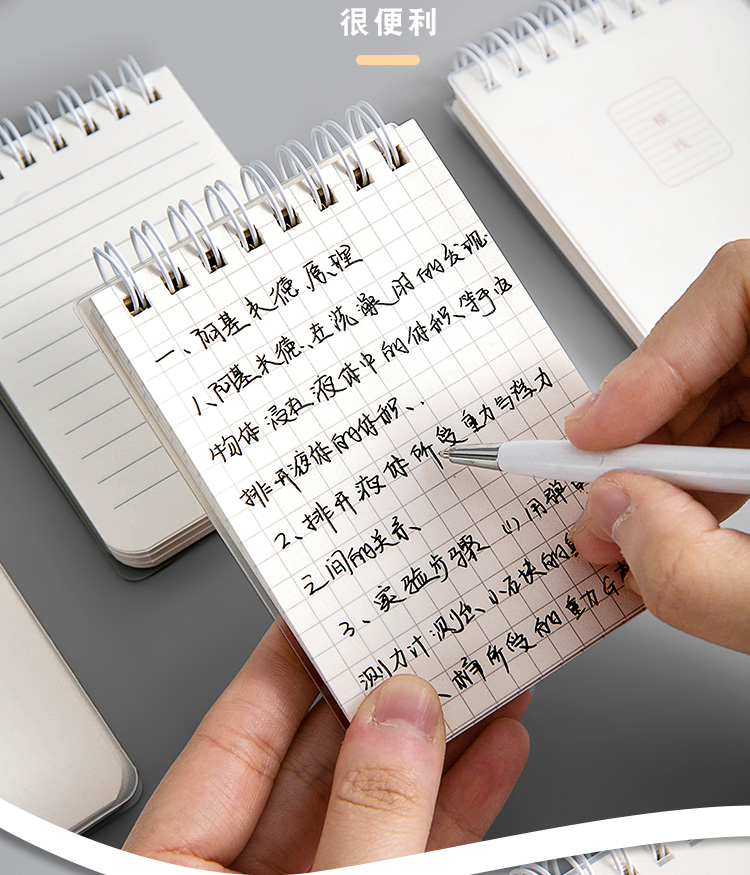 很便利
横
线
一、阿基米德原理
1、阿基米德、在洗澡时的发现.
物体浸在液体中的体积、等于它
排开液体的体积、.
2、排开液体所受重力与浮力
之间的关系
3、实验步骤 (1)用弹
测力计测出、小石块的
、桶所受的重力G